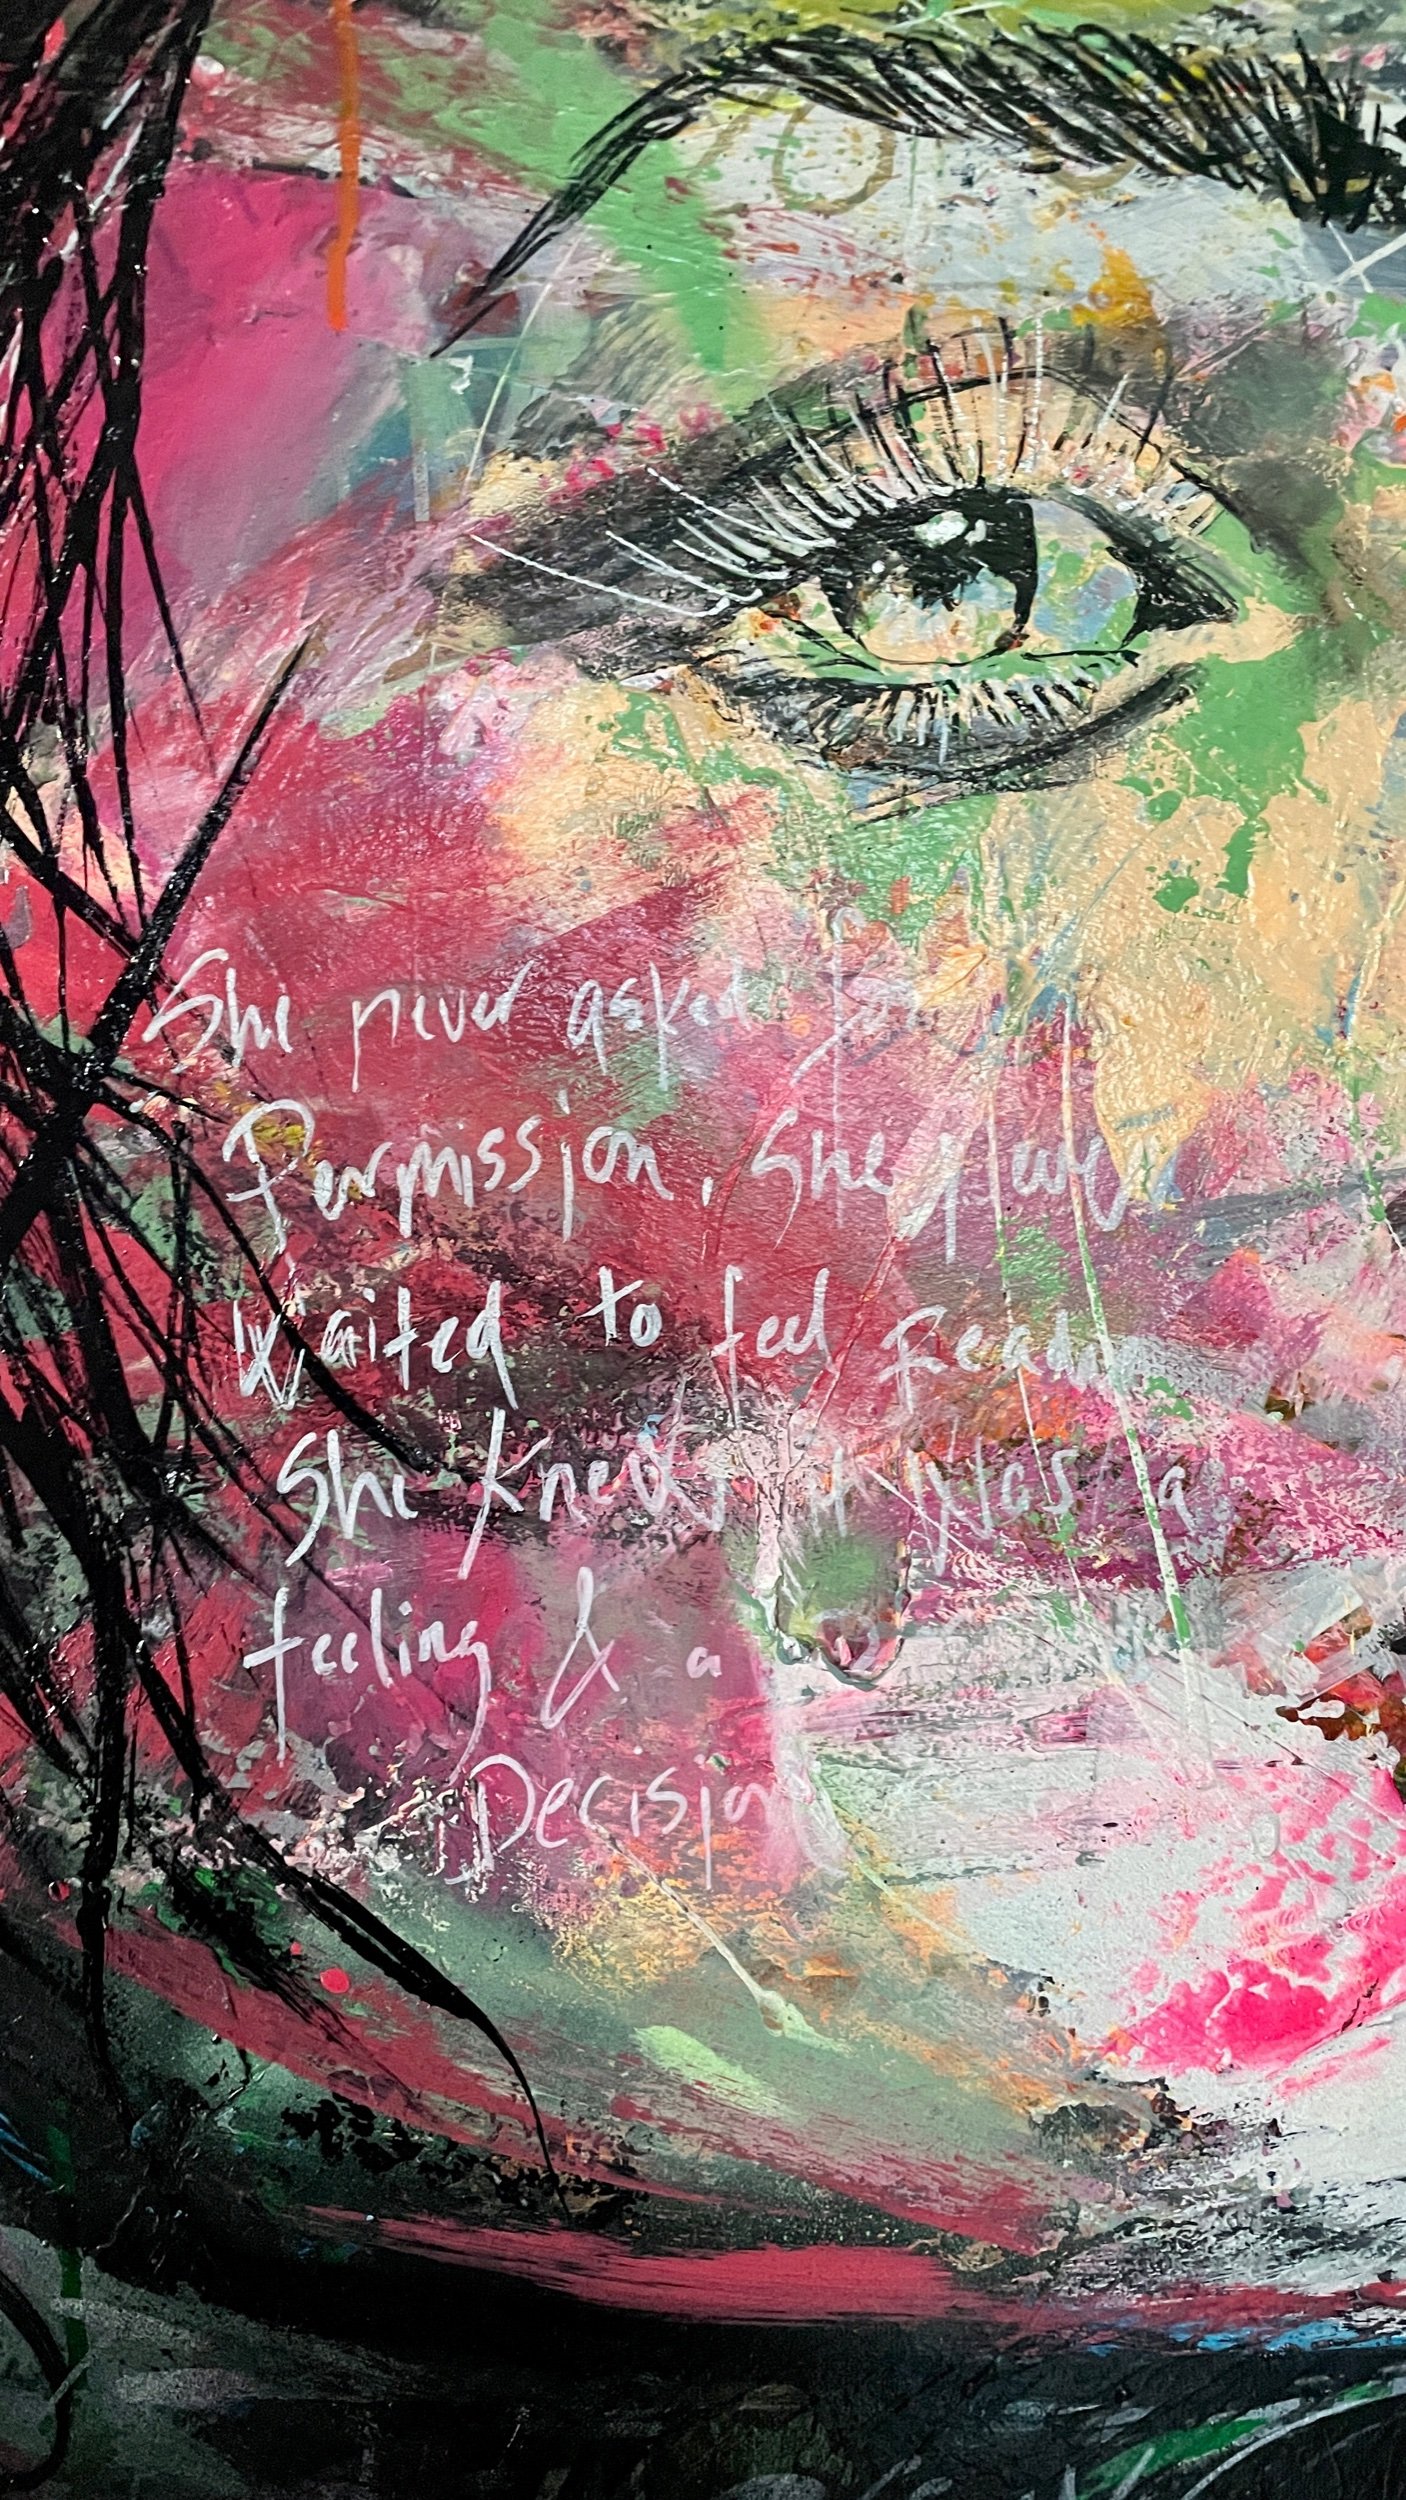 She never asked for
Permission, She never
waited to feel Ready
She Knew it was a
feeling & a
Decision